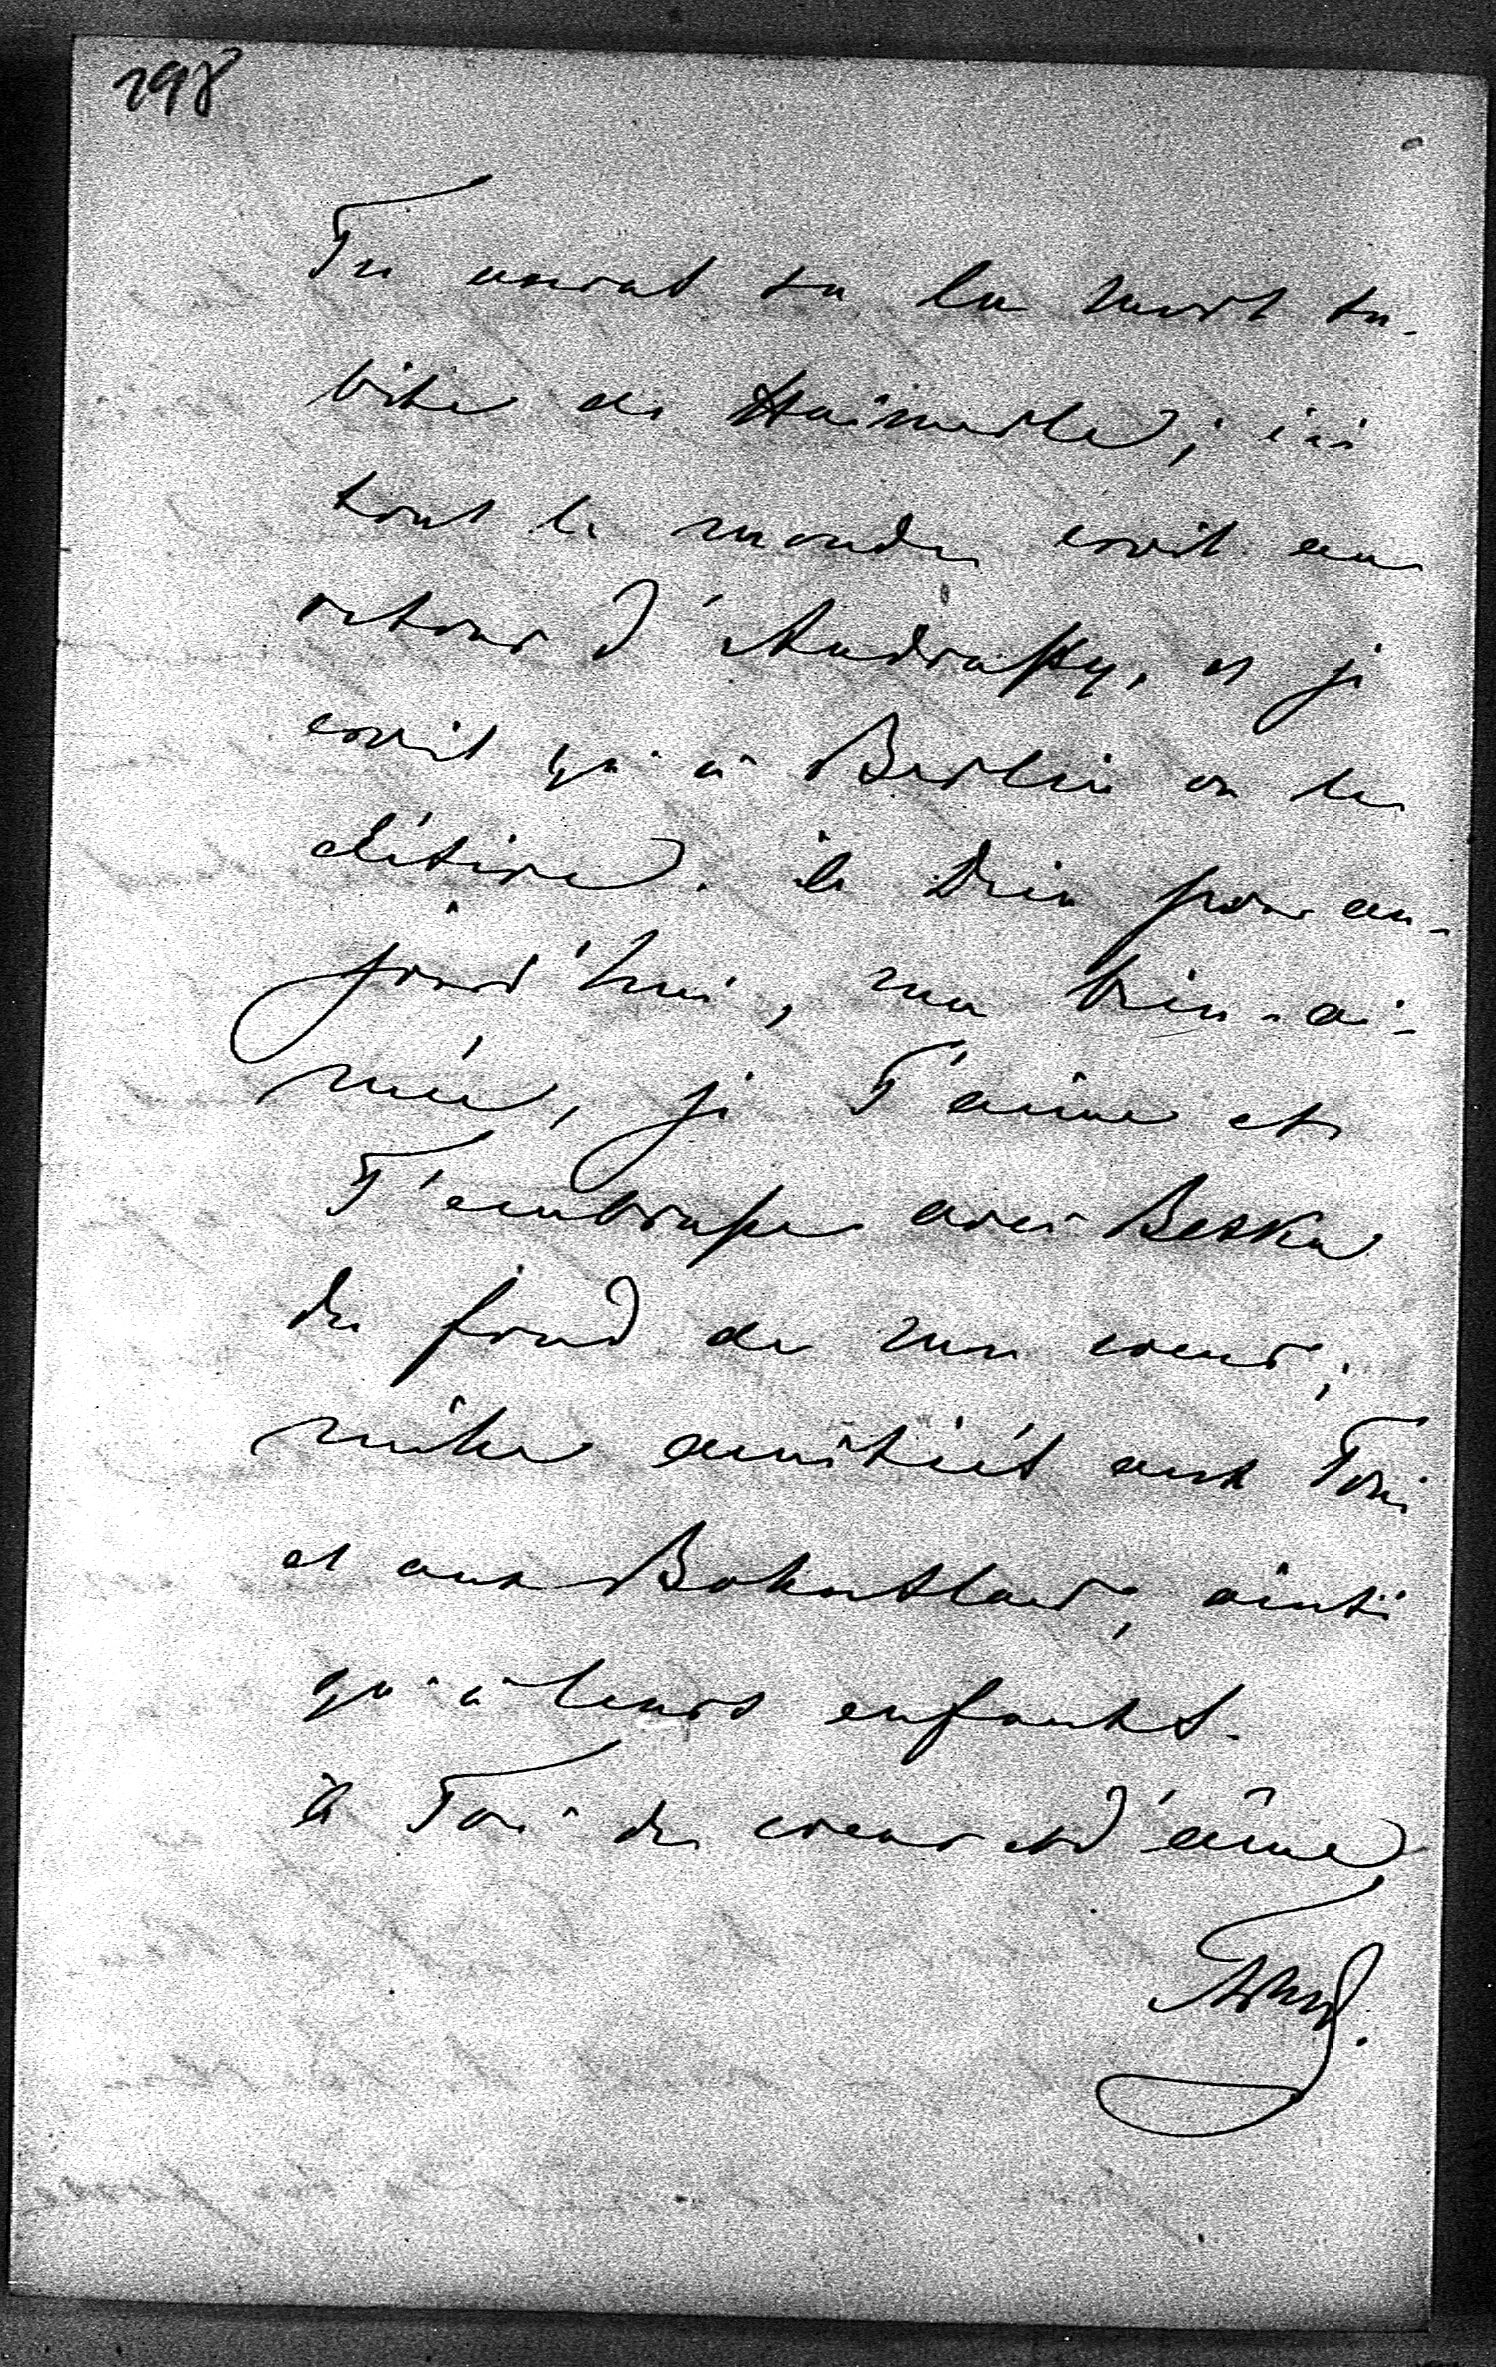 298
Tu auras su la mort su-
bite de Haimerle; ici
tout le monde croit au
retour d'Andrassy, et je
crois qu'à Berlin on le
désire. à Dieu pour au-
jourd'hui, ma bien-ai-
mée, je T'aime et
T'embrasse avec Beska
du fond de mon coeur;
mille amitiés aux Toni
et aux Bohuslav, ainsi
qu'à leurs enfants.
à Toi de coeur et d'âme